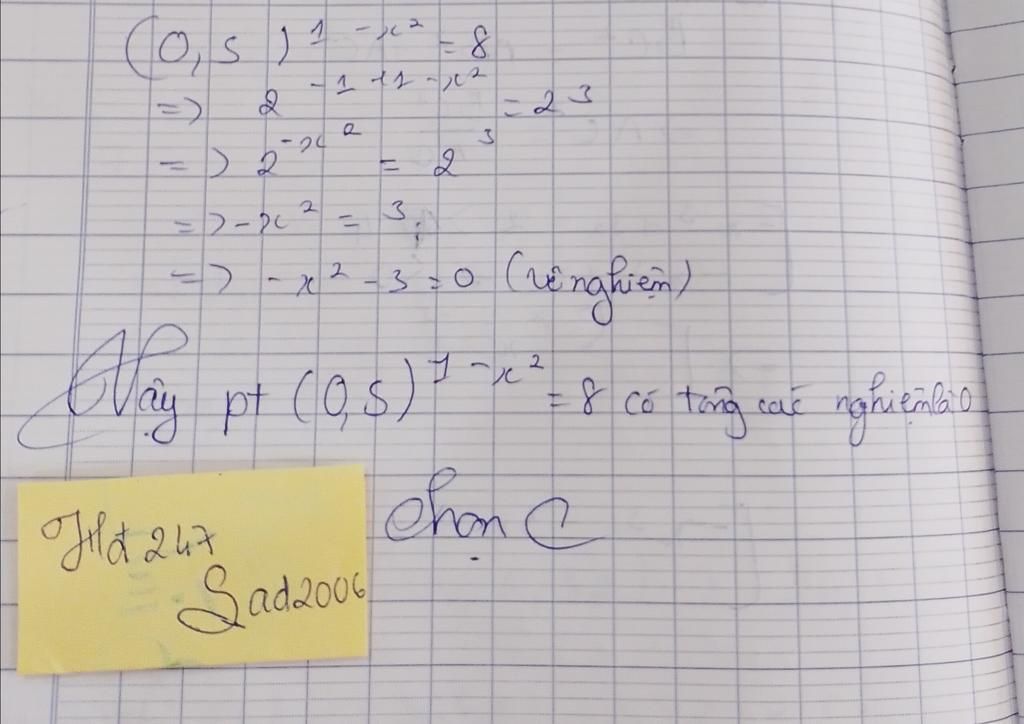 (0,5)^{1-x²} = 8
=> 2^{-1+1-x²} = 2³
=> 2^{-x²} = 2³
=> -x² = 3.
=> -x² - 3 = 0 (vô nghiệm)
Vậy pt (0,5)^{1-x²} = 8 có tổng các nghiệm là 0
Chọn C
Hđ 247
Sad2006